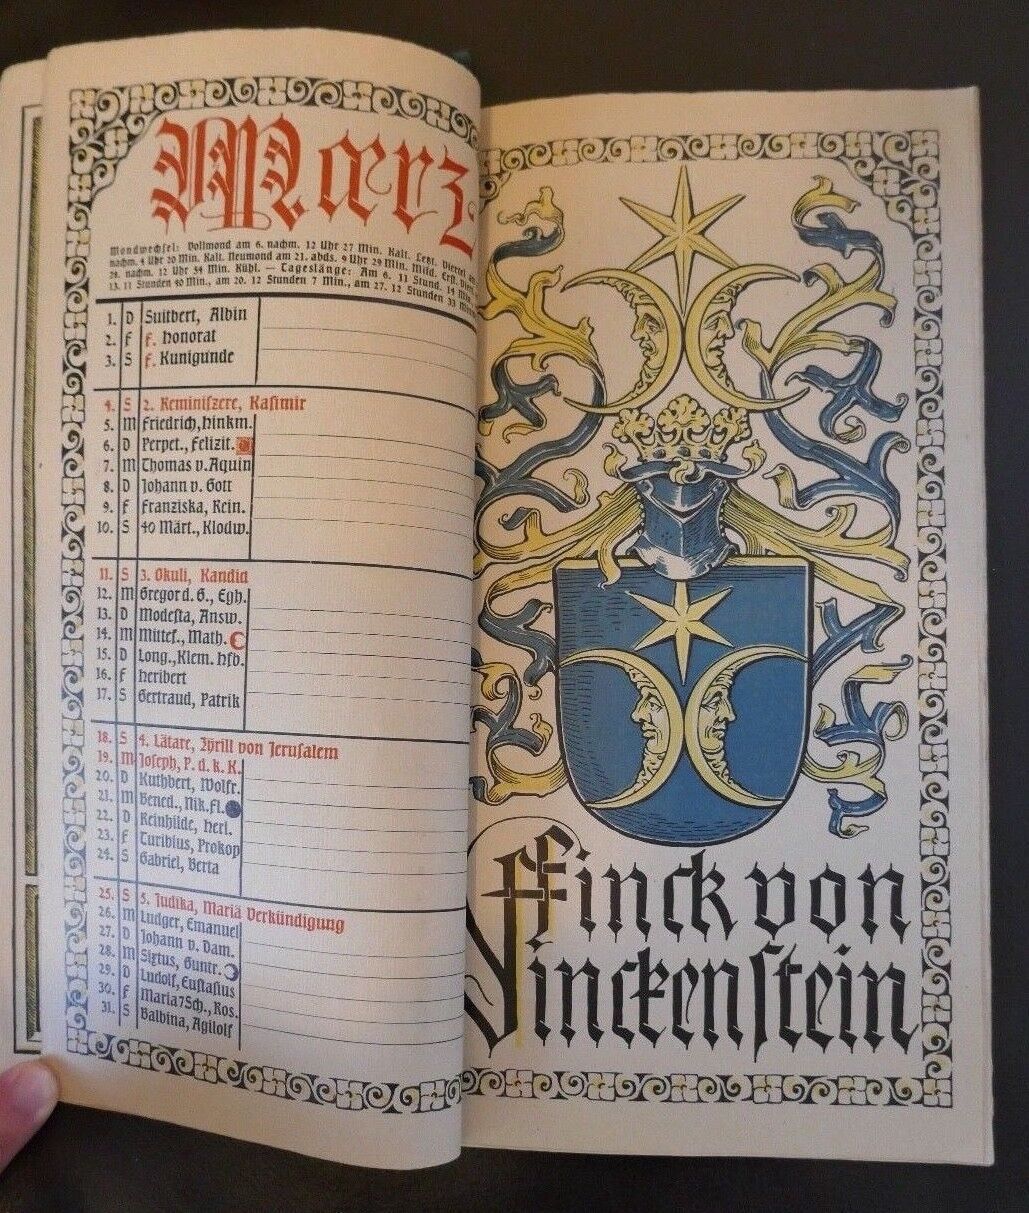 Maerz.
Mondwechsel: Vollmond am 6. nachm. 12 Uhr 27 Min. Kalt. Letzt. Viertel am
nachm. 4 Uhr 20 Min. Kalt. Neumond am 21. abds. 9 Uhr 29 Min. Mild. Erst. Viert.
28. nachm. 12 Uhr 54 Min. Kühl. — Tageslänge: Am 6. 11 Stund. 14 Min.
13. 11 Stunden 40 Min., am 20. 12 Stunden 7 Min., am 27. 12 Stunden 33 Minuten
1. D Suitbert, Albin
2. F F. Honorat
3. S F. Kunigunde
4. S 2. Reminiszere, Kasimir
5. M Friedrich, Hinkm.
6. D Perpet., Felizit.
7. M Thomas v. Aquin
8. D Johann v. Gott
9. F Franziska, Rein.
10. S 40 Märt., Klodw.
11. S 3. Okuli, Kandid
12. M Gregor d. G., Egh.
13. D Modesta, Answ.
14. M Mittef., Math.
15. D Long., Klem. Hfb.
16. F Heribert
17. S Gertraud, Patrik
18. S 4. Lätare, Zyrill von Jerusalem
19. M Joseph, P. d. k. K.
20. D Kuthbert, Wolfr.
21. M Bened., Nik. Fl.
22. D Reinhilde, Herl.
23. F Turibius, Prokop
24. S Gabriel, Berta
25. S 5. Judika, Mariä Verkündigung
26. M Ludger, Emanuel
27. D Johann v. Dam.
28. M Sixtus, Guntr.
29. D Ludolf, Eustasius
30. F Maria 7 Sch., Ros.
31. S Balbina, Agilolf
Finck von
Finckenstein